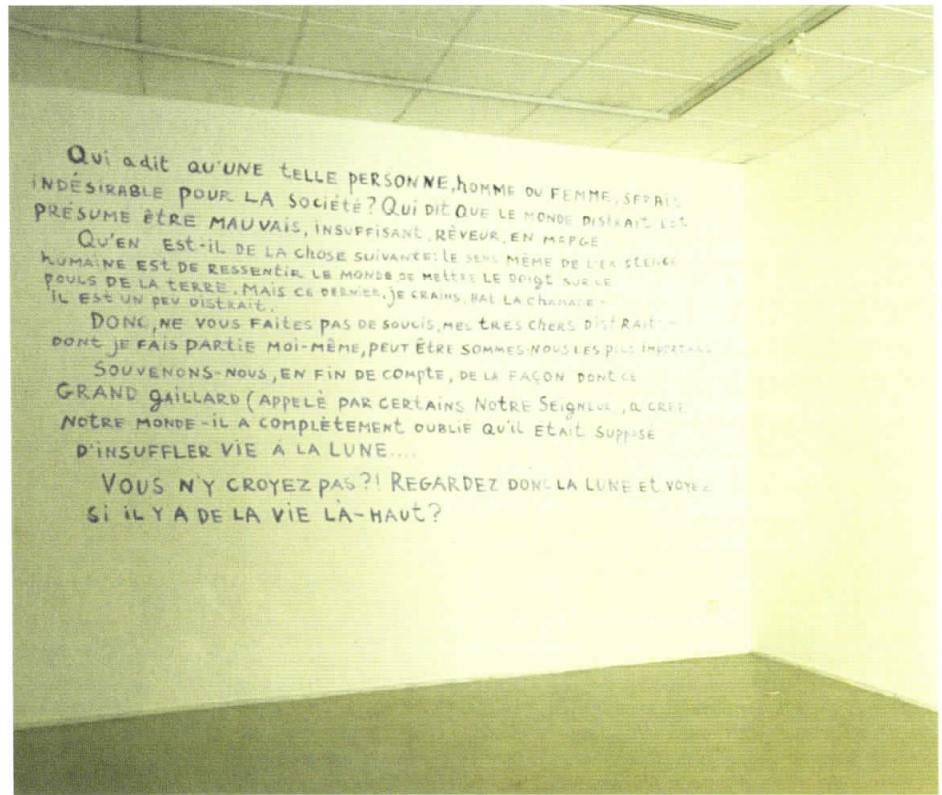 Qui a dit QU'UNE tELLE PERSONNE, hOMME OU FEMME, SERAIt
INDÉSIRABLE POUR LA SOCIÉTÉ? QUI DIT QUE LE MONDE DISTRAIT EST
PRÉSUMÉ ÊTRE MAUVAIS, INSUFFISANT, RÊVEUR, EN MARGE
QU'EN EST-IL DE LA ChOSE SUIVANTE: LE SENS MÊME DE L'EXISTENCE
hUMAINE EST DE RESSENTIR LE MONDE DE METTRE LE DOIGT SUR LE
POULS DE LA TERRE. MAIS CE DERNIER, JE CRAINS, BAT LA ChAMADE -
IL EST UN PEU DISTRAIT.
DONC, NE VOUS FAITES PAS DE SOUCIS, MES tRES ChERS DISTRAITS -
DONT JE FAIS PARTIE MOI-MÊME, PEUT ÊTRE SOMMES-NOUS LES PLUS
SOUVENONS-NOUS, EN FIN DE COMPTE, DE LA FAÇON DONT CE
GRAND gAILLARD (APPELÉ PAR CERTAINS NOTRE SEIGNEUR, A CRÉÉ
NOTRE MONDE - IL A COMPLÈTEMENT OUBLIÉ QU'IL ETAIT SUPPOSÉ
D'INSUFFLER VIE À LA LUNE....
VOUS N'Y CROYEZ PAS?! REGARDEZ DONC LA LUNE Et VOYEZ
Si iL Y A DE LA ViE LÀ-HAUT?